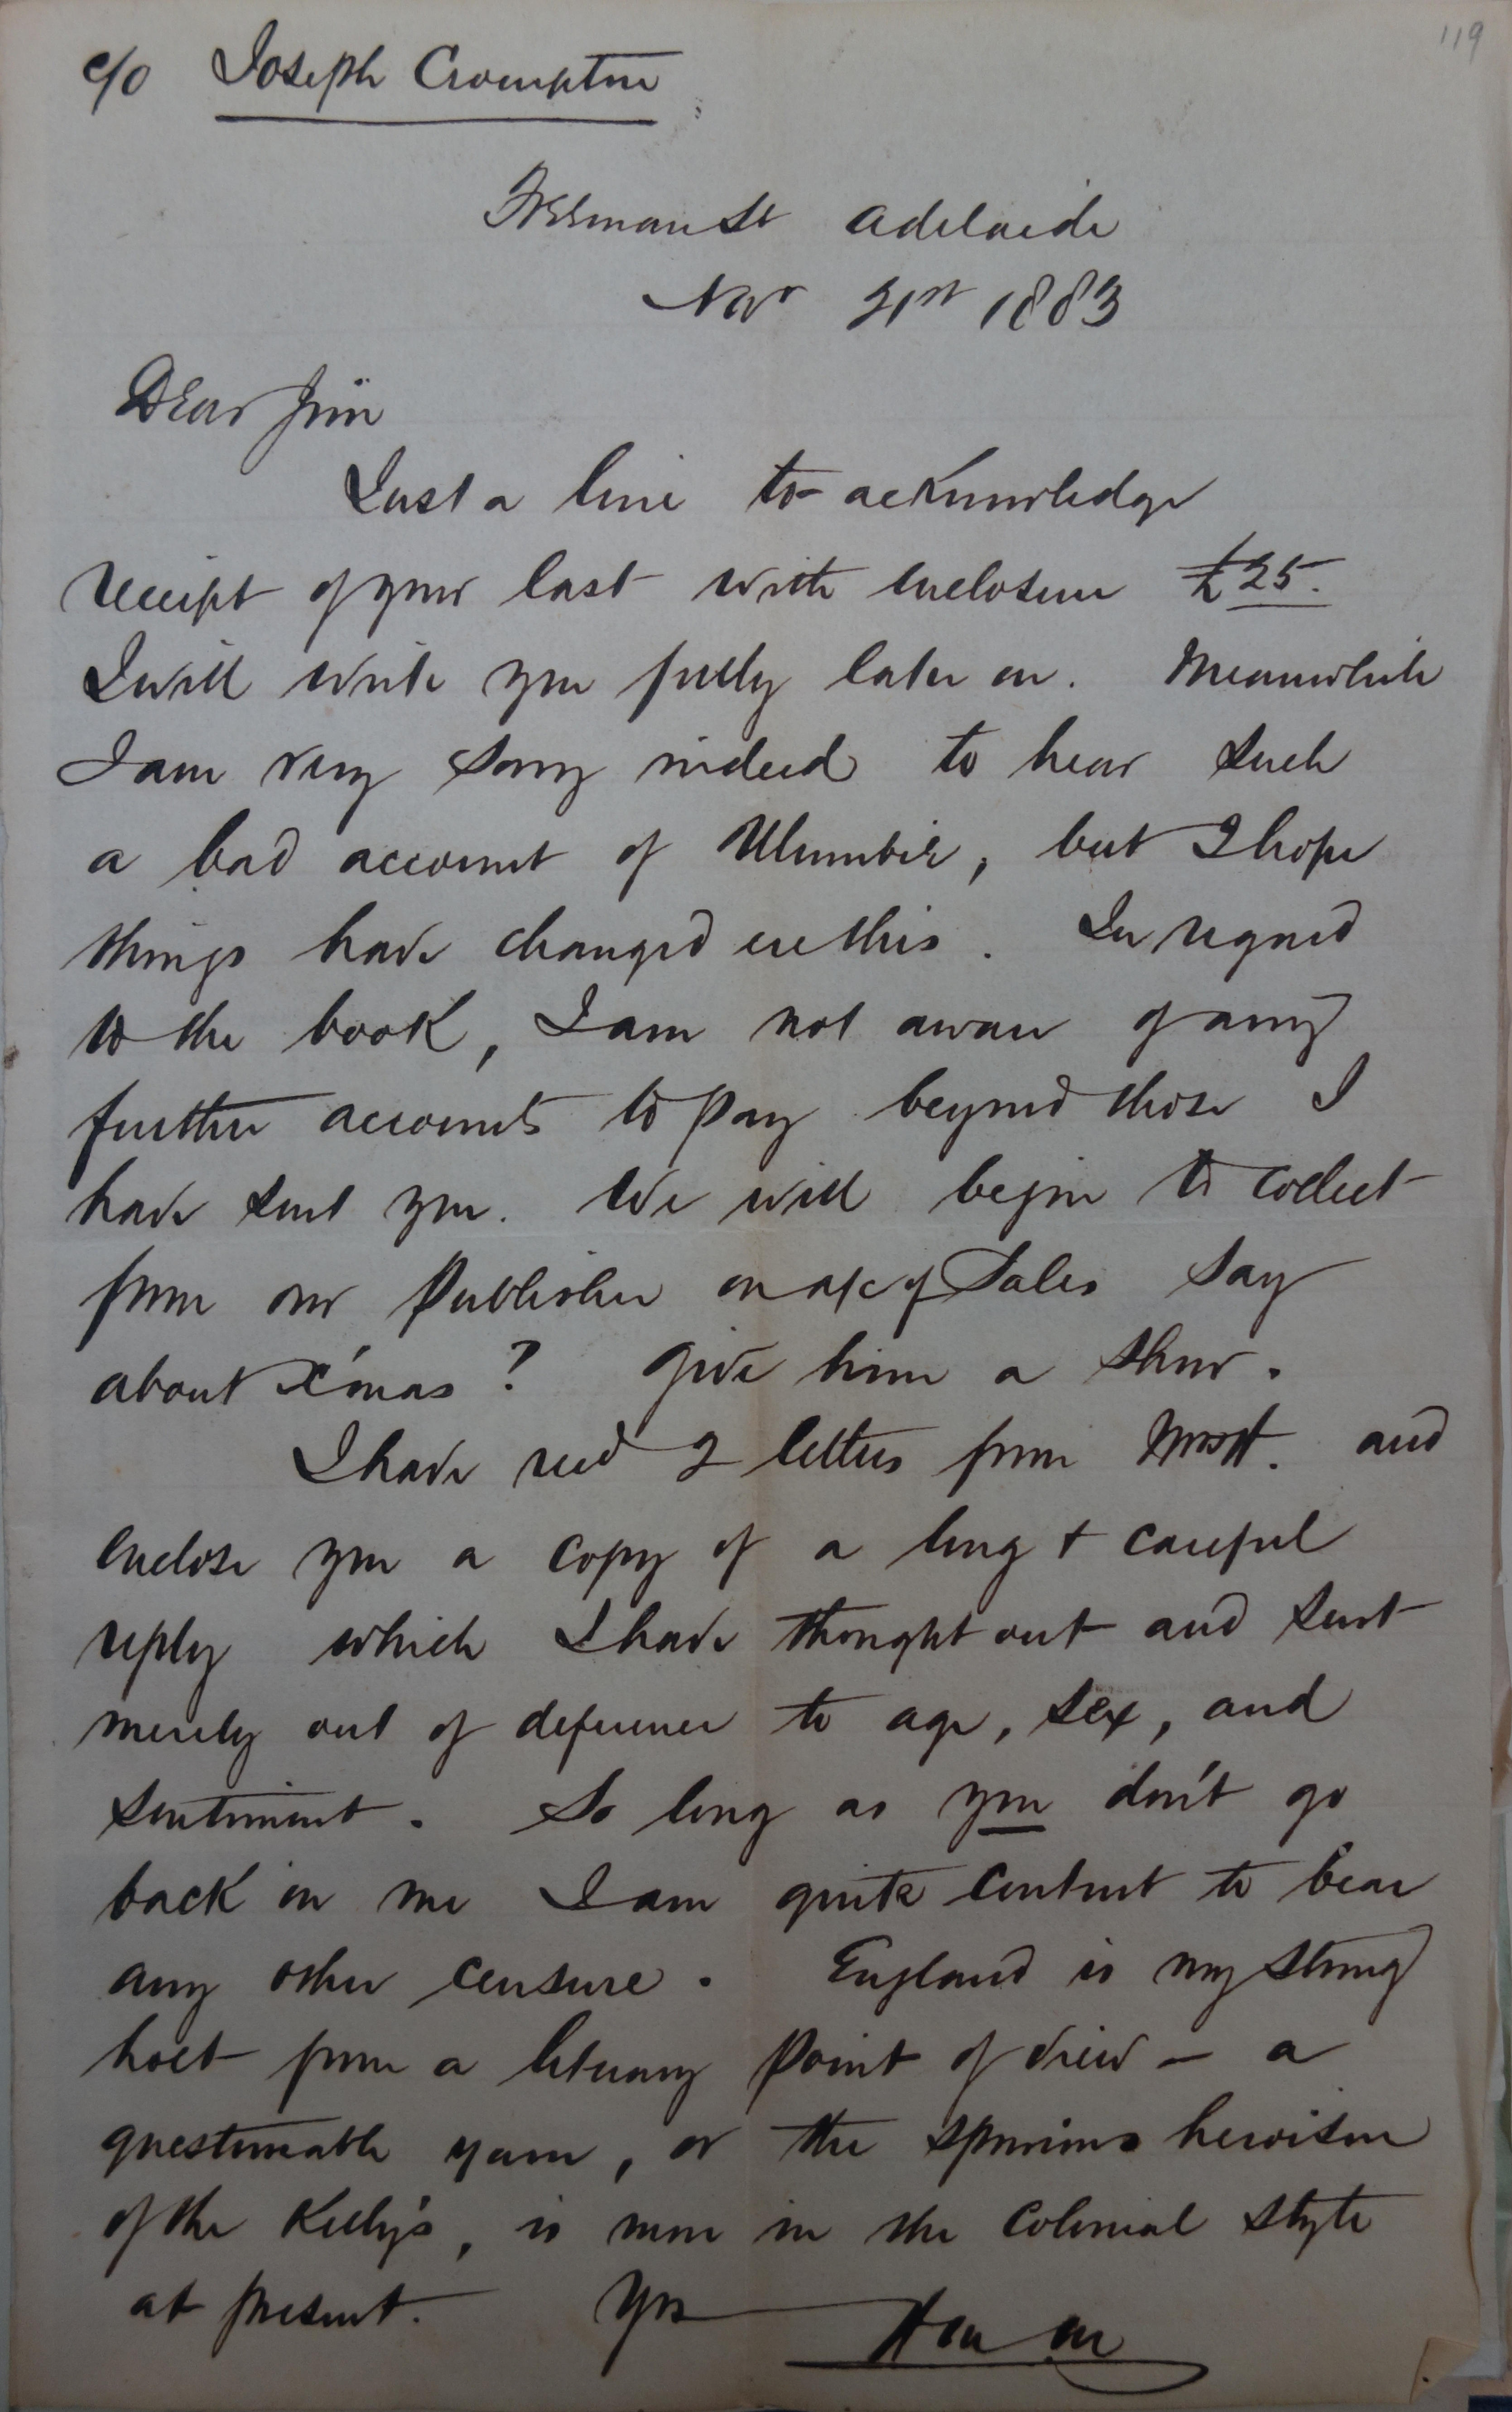 119
c/o Joseph Crompton
Freeman St Adelaide
Novr 21st 1883
Dear Jim
Just a line to acknowledge
receipt of your last with enclosure £25.
I will write you fully later on. Meanwhile
I am very sorry indeed to hear such
a bad account of , but I hope
things have changed ere this. In regard
to the book, I am not aware of any
further accounts to pay beyond those I
have sent you. We will begin to collect
from our Publisher on a/c of Sales say
about X'mas? Give him a show.
I have recd 2 letters from and
enclose you a copy of a long & careful
reply which I have thought out and sent
merely out of deference to age, sex, and
sentiment. So long as you don't go
back on me I am quite content to bear
any other censure. England is my strong
holt from a literary point of view – a
questionable yarn, or the spurious heroism
of the Kelly's, is more in the Colonial style
at present. Yrs